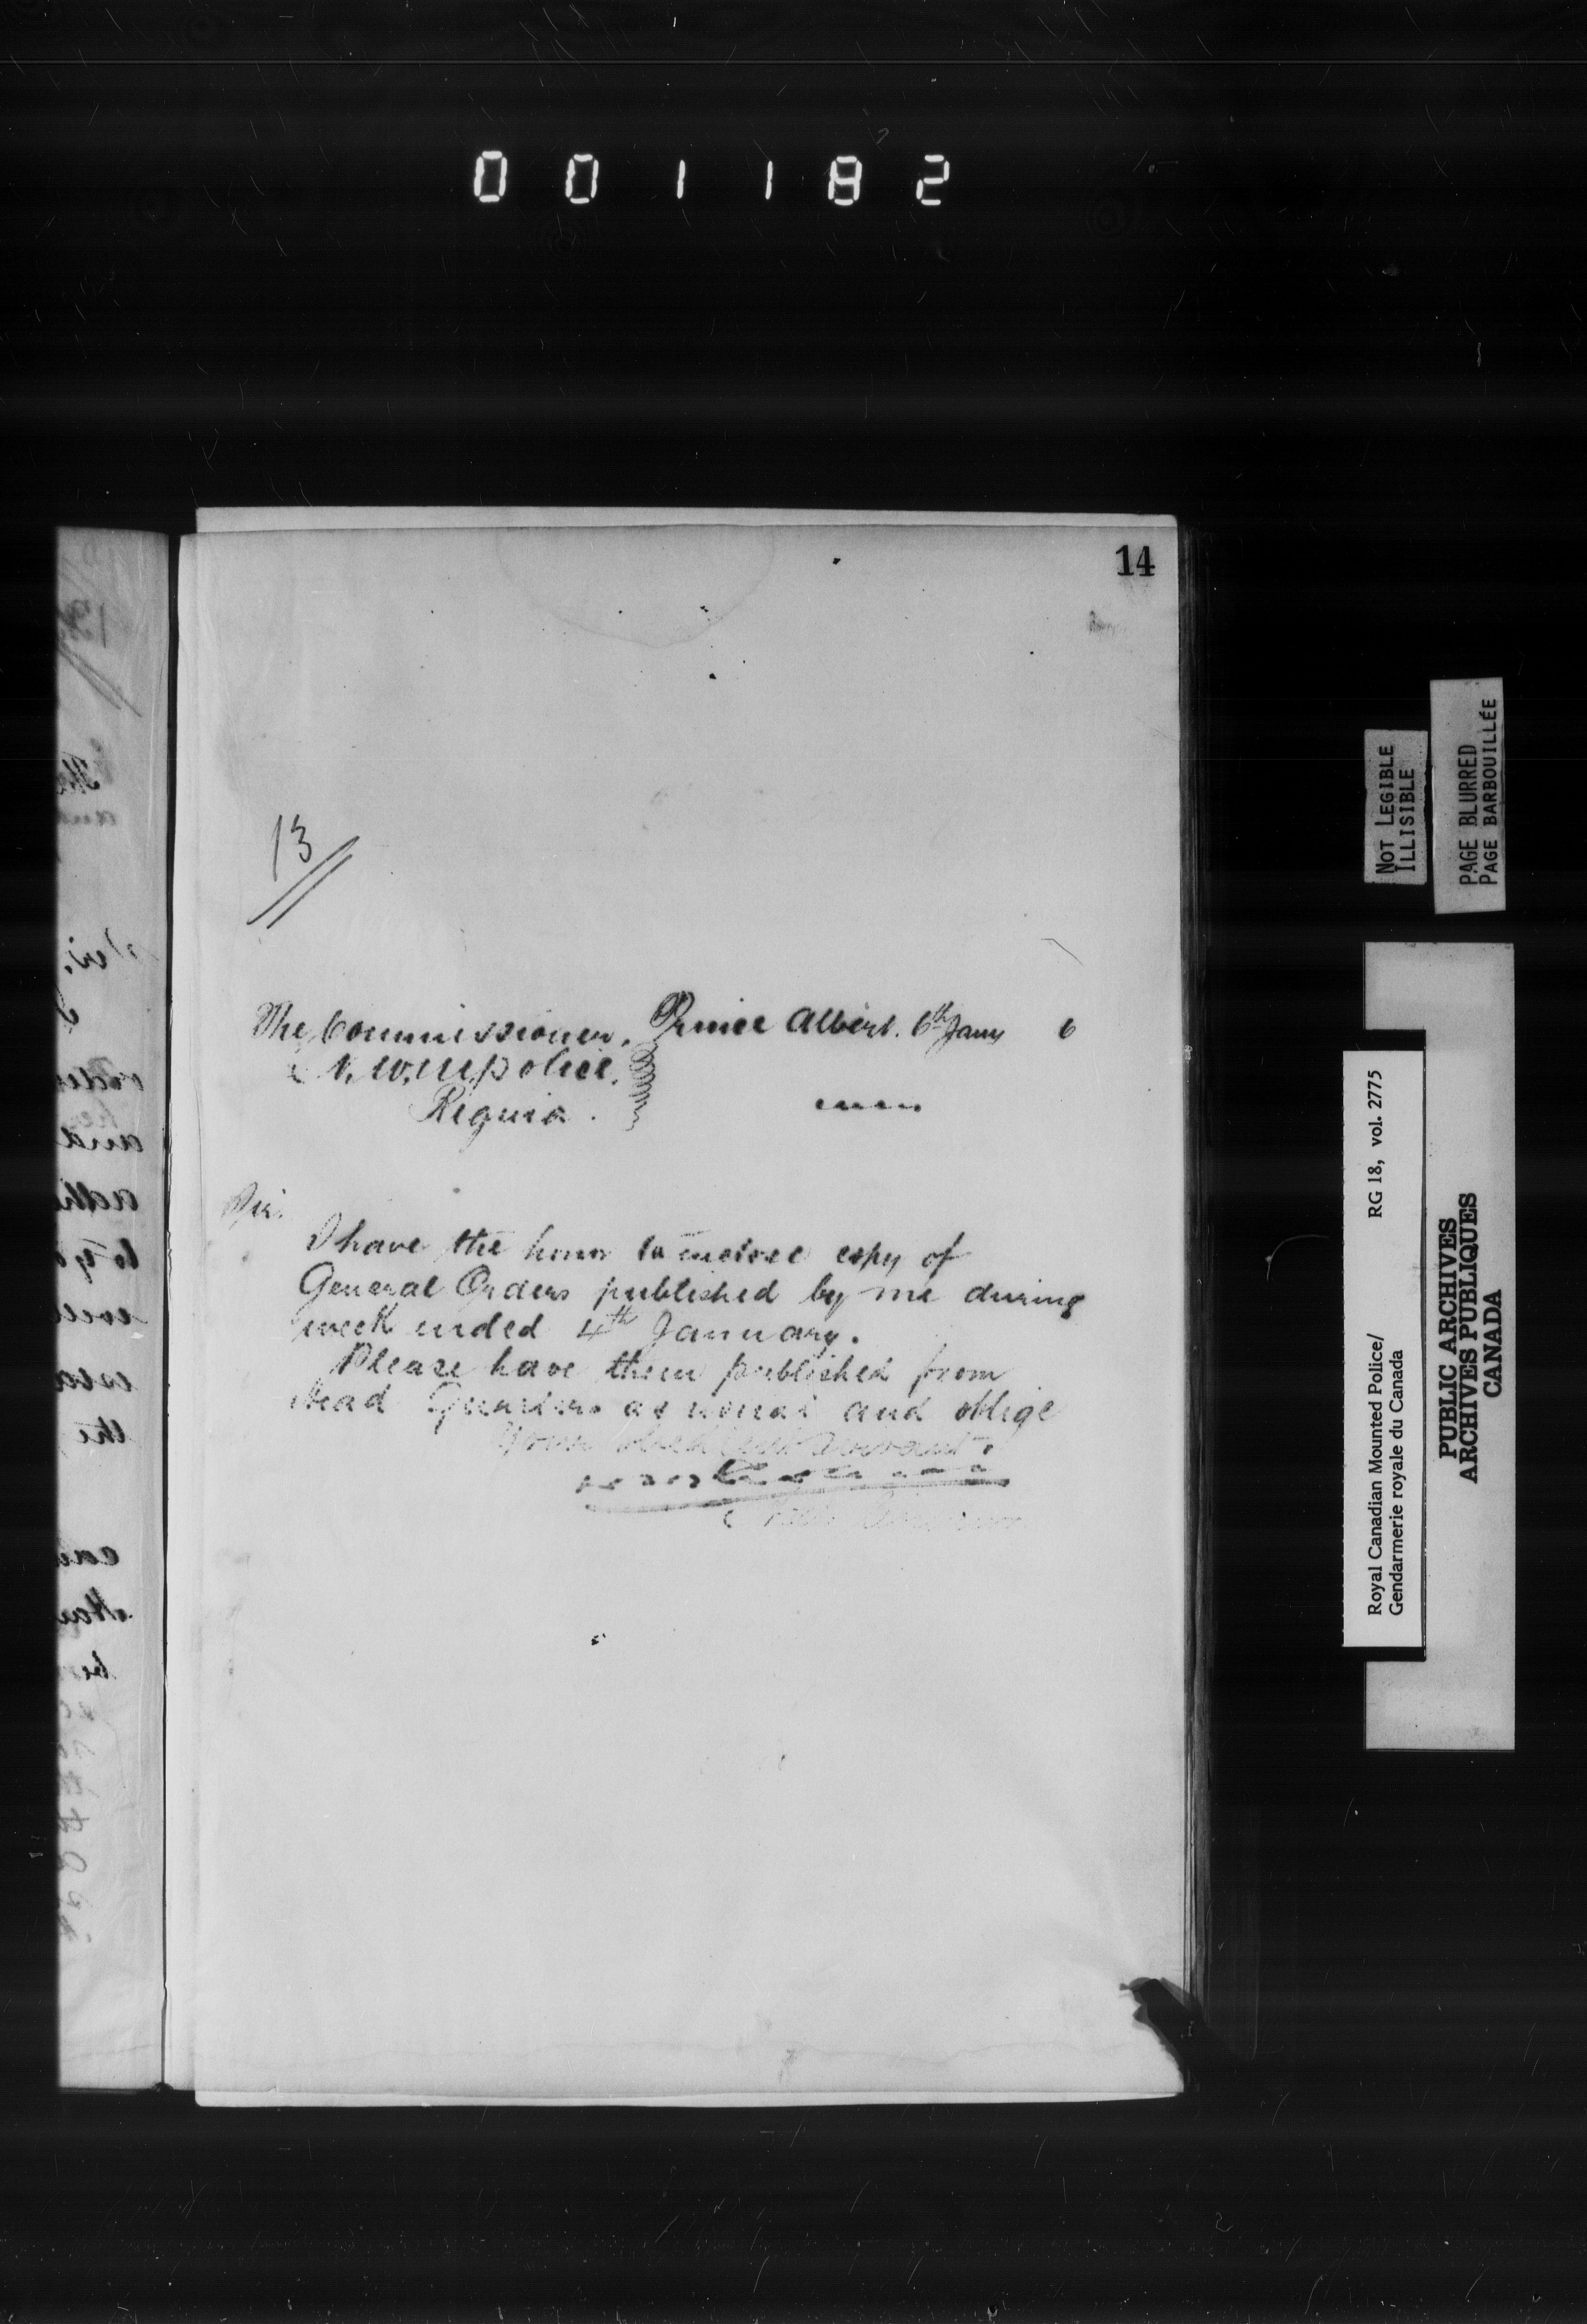 001182
14
13
The Commissioner, Prince Albert. 6th Jany 6
N.W.M. police.
Regina.
Sir.
I have the honor to enclose copy of
General Orders published by me during
week ended 4th January.
Please have them published from
Head Quarters as usual and oblige
Your obedient servant.
NOT LEGIBLE
ILLISIBLE
PAGE BLURRED
PAGE BARBOUILLÉE
Royal Canadian Mounted Police/ RG 18, vol. 2775
Gendarmerie royale du Canada
PUBLIC ARCHIVES
ARCHIVES PUBLIQUES
CANADA